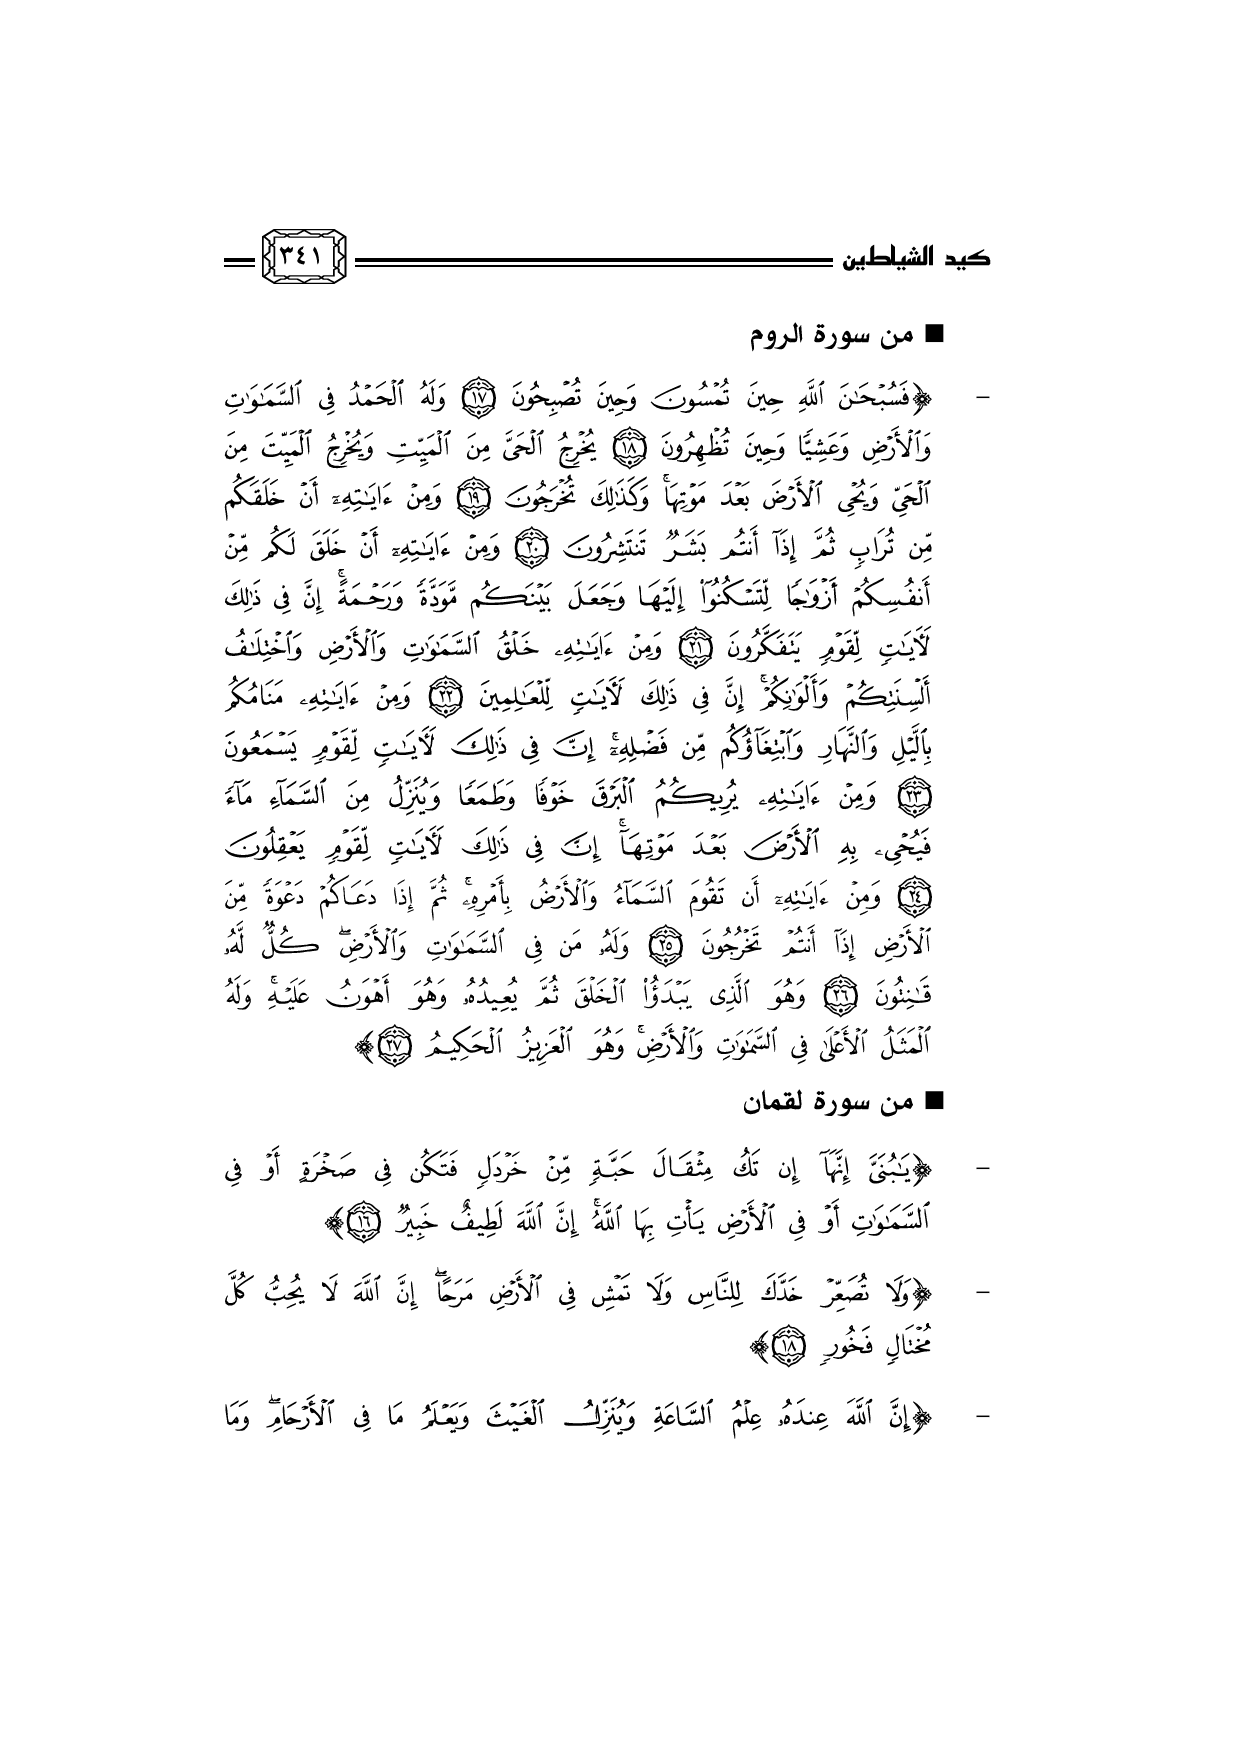 كيد الشياطين ٣٤١
■ من سورة الروم
- ﴿فَسُبْحَٰنَ ٱللَّهِ حِينَ تُمْسُونَ وَحِينَ تُصْبِحُونَ ١٧ وَلَهُ ٱلْحَمْدُ فِى ٱلسَّمَٰوَٰتِ
وَٱلْأَرْضِ وَعَشِيًّا وَحِينَ تُظْهِرُونَ ١٨ يُخْرِجُ ٱلْحَىَّ مِنَ ٱلْمَيِّتِ وَيُخْرِجُ ٱلْمَيِّتَ مِنَ
ٱلْحَىِّ وَيُحْىِ ٱلْأَرْضَ بَعْدَ مَوْتِهَا ۚ وَكَذَٰلِكَ تُخْرَجُونَ ١٩ وَمِنْ ءَايَٰتِهِۦٓ أَنْ خَلَقَكُم
مِّن تُرَابٍ ثُمَّ إِذَآ أَنتُم بَشَرٌ تَنتَشِرُونَ ٢٠ وَمِنْ ءَايَٰتِهِۦٓ أَنْ خَلَقَ لَكُم مِّنْ
أَنفُسِكُمْ أَزْوَٰجًا لِّتَسْكُنُوٓا۟ إِلَيْهَا وَجَعَلَ بَيْنَكُم مَّوَدَّةً وَرَحْمَةً ۚ إِنَّ فِى ذَٰلِكَ
لَءَايَٰتٍ لِّقَوْمٍ يَتَفَكَّرُونَ ٢١ وَمِنْ ءَايَٰتِهِۦ خَلْقُ ٱلسَّمَٰوَٰتِ وَٱلْأَرْضِ وَٱخْتِلَٰفُ
أَلْسِنَتِكُمْ وَأَلْوَٰنِكُمْ ۚ إِنَّ فِى ذَٰلِكَ لَءَايَٰتٍ لِّلْعَٰلِمِينَ ٢٢ وَمِنْ ءَايَٰتِهِۦ مَنَامُكُم
بِٱلَّيْلِ وَٱلنَّهَارِ وَٱبْتِغَآؤُكُم مِّن فَضْلِهِۦٓ ۚ إِنَّ فِى ذَٰلِكَ لَءَايَٰتٍ لِّقَوْمٍ يَسْمَعُونَ
٢٣ وَمِنْ ءَايَٰتِهِۦ يُرِيكُمُ ٱلْبَرْقَ خَوْفًا وَطَمَعًا وَيُنَزِّلُ مِنَ ٱلسَّمَآءِ مَآءً
فَيُحْىِۦ بِهِ ٱلْأَرْضَ بَعْدَ مَوْتِهَآ ۚ إِنَّ فِى ذَٰلِكَ لَءَايَٰتٍ لِّقَوْمٍ يَعْقِلُونَ
٢٤ وَمِنْ ءَايَٰتِهِۦٓ أَن تَقُومَ ٱلسَّمَآءُ وَٱلْأَرْضُ بِأَمْرِهِۦ ۚ ثُمَّ إِذَا دَعَاكُمْ دَعْوَةً مِّنَ
ٱلْأَرْضِ إِذَآ أَنتُمْ تَخْرُجُونَ ٢٥ وَلَهُۥ مَن فِى ٱلسَّمَٰوَٰتِ وَٱلْأَرْضِ ۖ كُلٌّ لَّهُۥ
قَٰنِتُونَ ٢٦ وَهُوَ ٱلَّذِى يَبْدَؤُا۟ ٱلْخَلْقَ ثُمَّ يُعِيدُهُۥ وَهُوَ أَهْوَنُ عَلَيْهِ ۚ وَلَهُ
ٱلْمَثَلُ ٱلْأَعْلَىٰ فِى ٱلسَّمَٰوَٰتِ وَٱلْأَرْضِ ۚ وَهُوَ ٱلْعَزِيزُ ٱلْحَكِيمُ ٢٧﴾
■ من سورة لقمان
- ﴿يَٰبُنَىَّ إِنَّهَآ إِن تَكُ مِثْقَالَ حَبَّةٍ مِّنْ خَرْدَلٍ فَتَكُن فِى صَخْرَةٍ أَوْ فِى
ٱلسَّمَٰوَٰتِ أَوْ فِى ٱلْأَرْضِ يَأْتِ بِهَا ٱللَّهُ ۚ إِنَّ ٱللَّهَ لَطِيفٌ خَبِيرٌ ١٦﴾
- ﴿وَلَا تُصَعِّرْ خَدَّكَ لِلنَّاسِ وَلَا تَمْشِ فِى ٱلْأَرْضِ مَرَحًا ۖ إِنَّ ٱللَّهَ لَا يُحِبُّ كُلَّ
مُخْتَالٍ فَخُورٍ ١٨﴾
- ﴿إِنَّ ٱللَّهَ عِندَهُۥ عِلْمُ ٱلسَّاعَةِ وَيُنَزِّلُ ٱلْغَيْثَ وَيَعْلَمُ مَا فِى ٱلْأَرْحَامِ ۖ وَمَا